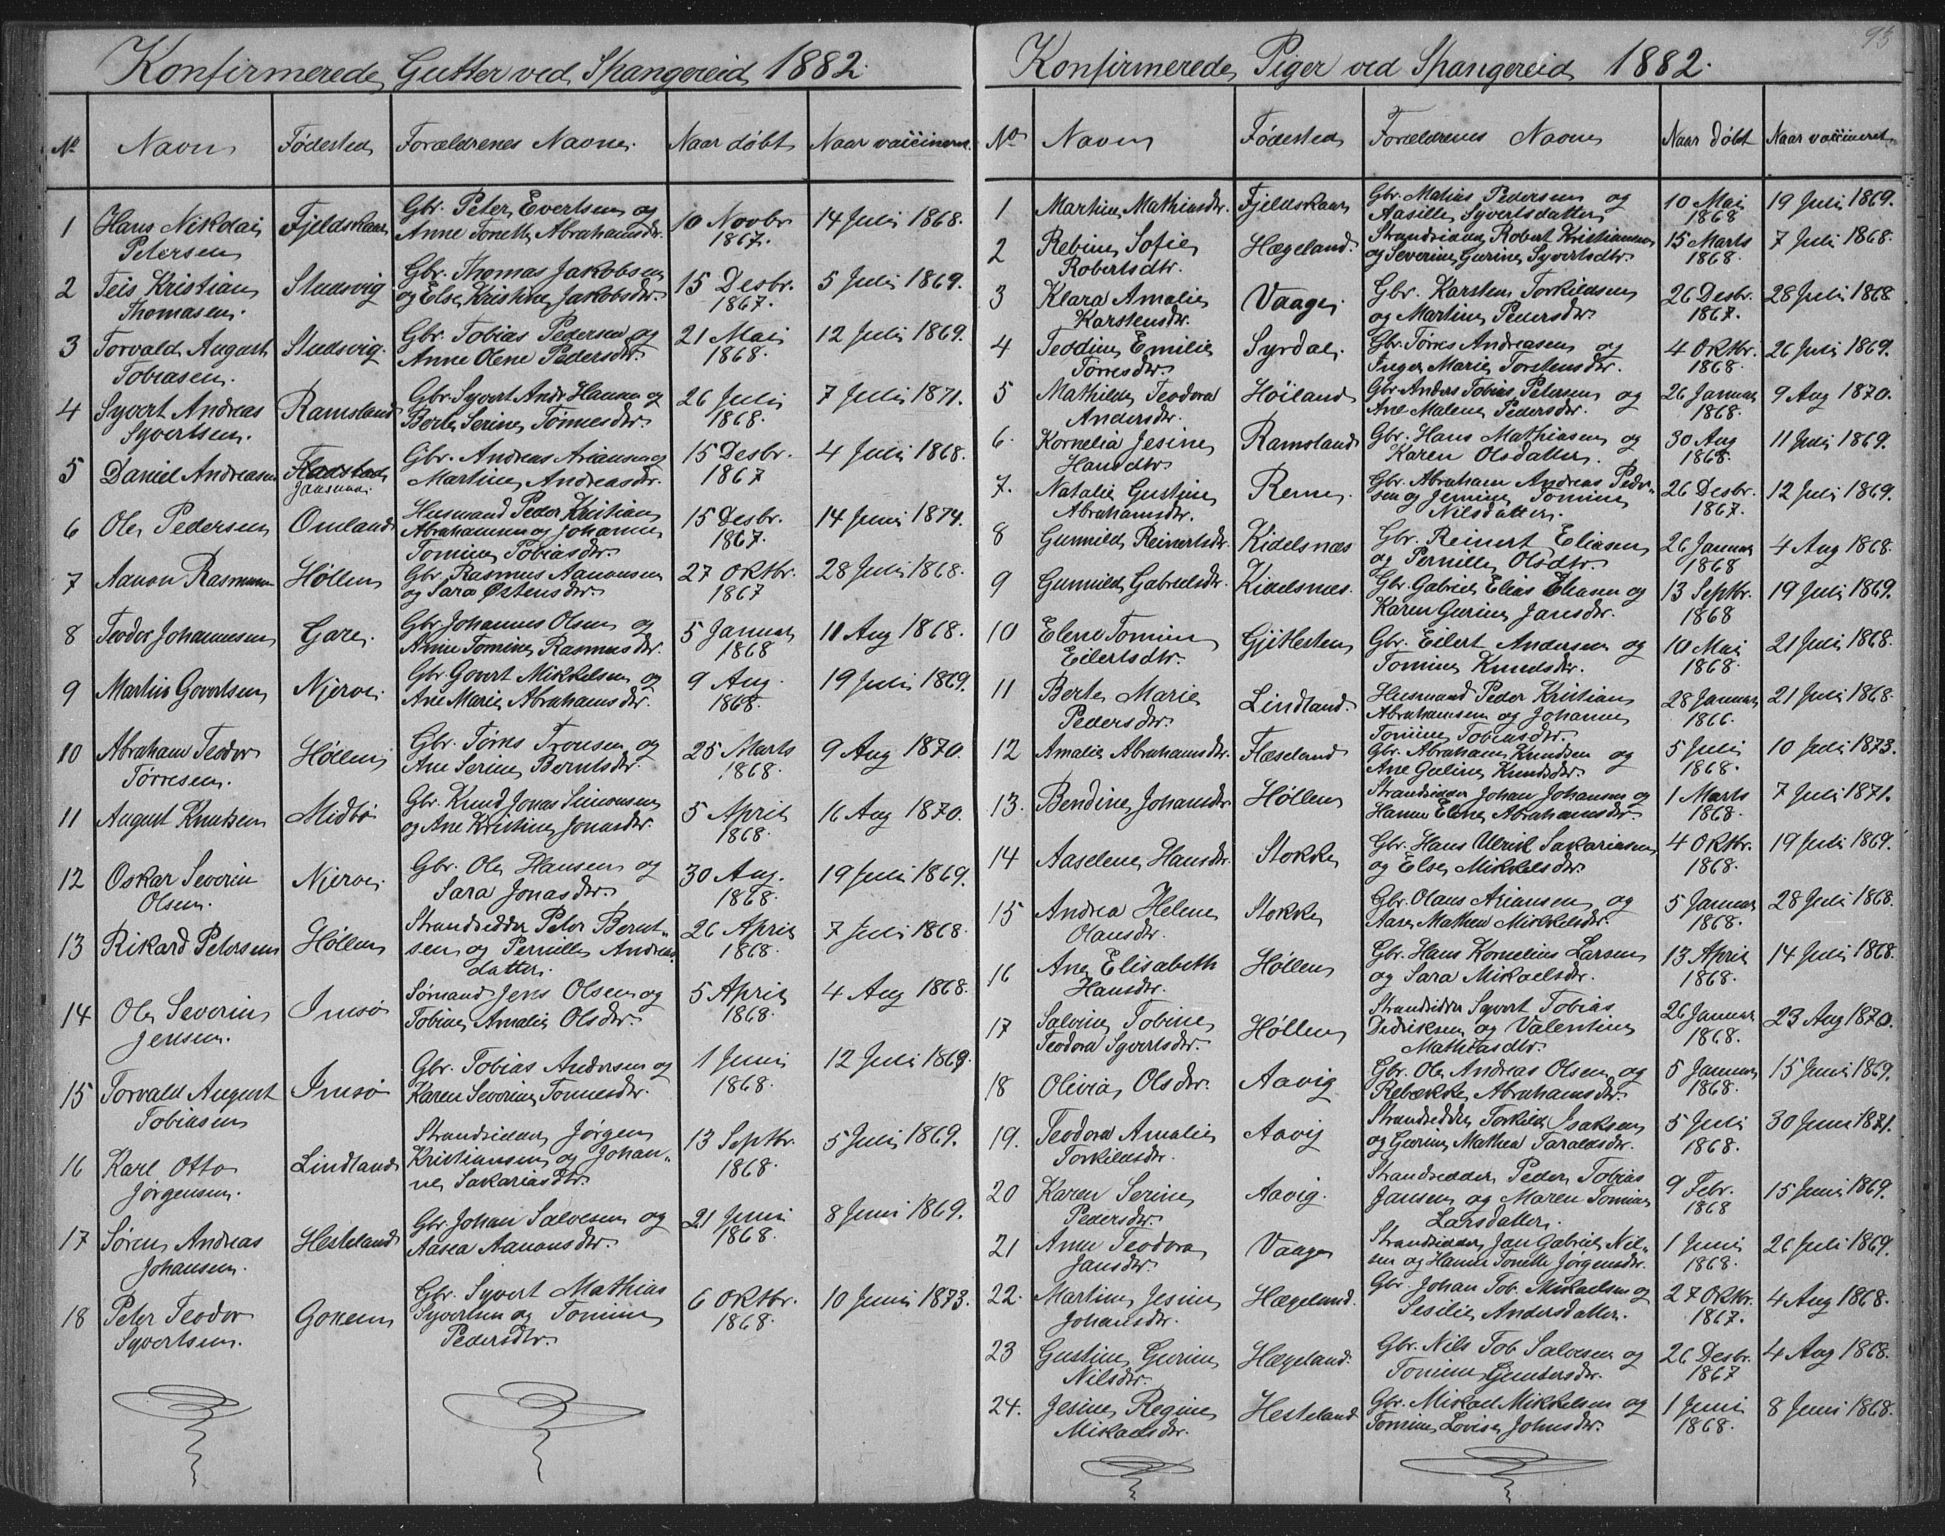 Konfirmerede Gutter ved Spangereid 1882.
No Navn Fødested Forældrenes Navne Naar døbt Naar vaccineret
1 Hans Nikolai Petersen Fjeldskaar Gbr. Peter Evertsen og Anne Tonette Abrahamsdtr. 10 Novbr 1867. 14 Juli 1868.
2 Teis Kristian Thomasen. Studsvig Gbr. Thomas Jakobsen og Else Kristine Jakobsdtr. 15 Desbr. 1867. 5 Juli 1869.
3 Torvald August Tobiasen. Studsvig. Gbr. Tobias Pedersen og Anne Olene Pedersdtr. 21 Mai 1868. 12 Juli 1869.
4 Syvert Andreas Syvertsen. Ramsland Gbr. Syvert Andr Hansen og Berte Serine Tønnesdtr. 26 Juli 1868. 7 Juli 1871.
5 Daniel Andreasen Gbr. Andreas Ariansen og Martine Andreasdr. 15 Desbr. 1867 4 Juli 1868.
6 Ole Pedersen Omland Husmand Peder Kristian Abrahamsen og Johanne Tomine Tobiasdtr. 15 Desbr. 1867. 14 Juni 1874.
7 Aanon Rasmussen Høllen Gbr. Rasmus Aanonsen og Sara Østensdtr. 27 Oktbr. 1867 28 Juli 1868.
8 Teodor Johannesen Gare. Gbr. Johannes Olsen og Anne Tomine Rasmusdtr. 5 Januar 1868 11 Aug 1868.
9 Martin Govertsen Njerve. Gbr. Govert Mikkelsen og Ane Marie Abrahamsdtr. 9 Aug. 1868. 19 Juli 1869.
10 Abraham Teodor Tørresen. Høllen Gbr. Tørres Tronsen og Ane Serine Berntsdtr. 25 Marts 1868. 9 Aug 1870.
11 August Knutsen Midbø Gbr. Knud Jonas Simonsen og Ane Kristine Jonasdtr. 5 April 1868. 16 Aug 1870.
12 Oskar Severin Olsen. Njerve. Gbr. Ole Hansen og Sara Jonasdtr. 30 Aug. 1868. 19 Juli 1869.
13 Rikard Petersen Høllen Strandsidder Peter Berntsen og Pernille Andreasdatter. 26 April 1868. 7 Juli 1868.
14 Ole Severin Jensen. Imsø Sømand Jens Olsen og Tobine Amalie Olsdtr. 5 April 1868. 4 Aug 1868.
15 Torvald August Tobiasen Imsø Gbr. Tobias Andersen og Karen Severine Tønnesdtr. 1 Juni 1868. 12 Juli 1869.
16 Karl Otto Jørgensen. Lindland Strandsidder Jørgen Kristiansen og Johanne Sakariasdtr. 13 Septbr. 1868. 5 Juli 1869.
17 Søren Andreas Johansen. Hesteland Gbr. Johan Salvesen og Aasea Aanonsdtr. 21 Juni 1868. 8 Juni 1869.
18 Peter Teodor Syvertsen. Gonem Gbr. Syvert Mathias Syvertsen og Tomine Pedersdtr. 6 Oktbr. 1868. 10 Juni 1873.
95
Konfirmerede Piger ved Spangereid 1882.
No Navn Fødested Forældrenes Navne Naar døbt Naar vaccineret
1 Martine Mathiasdtr. Fjeldskaar Gbr. Matias Pedersen og Aasille Syvertsdatter 10 Mai 1868 19 Juli 1869.
2 Rebine Sofie Robertsdtr. Hægeland. Strandsidder Robert Kristiansen og Severine Gurine Syvertsdtr. 15 Marts 1868. 7 Juli 1868.
3 Klara Amalie Karstensdtr. Vaage. Gbr. Karsten Torkildsen og Martine Pedersdtr. 26 Desbr. 1867. 28 Juli 1868
4 Teodine Emilie Tørresdtr. Syrdal. Gbr. Tørres Andreasen og Inger Marie Torstensdtr. 4 Oktbr. 1868. 26 Juli 1869.
5 Mathilde Teodora Andersdtr. Høiland Gbr Anders Tobias Petersen og Ane Malene Pedersdtr. 26 Januar 1868. 9 Aug 1870.
6. Kornelia Jesine Hansdtr. Ramsland Gbr. Hans Mathiasen og Karen Olsdatter. 30 Aug 1868. 11 Juli 1869.
7. Natalie Gustine Abrahamsdtr. Rerne. Gbr. Abraham Andreas Pedersen og Jensine Tomine Nilsdatter. 26 Desbr. 1867. 12 Juli 1869.
8 Gunnild Reinertsdtr. Kidelsnæs Gbr. Reinert Eliasen og Pernille Olsdtr. 26 Januar 1868 4 Aug 1868.
9 Gunnild Gabrielsdtr. Kidelsnæs. Gbr. Gabriel Elias Eliasen og Karen Gurine Jansdtr. 13 Septbr. 1868 19 Juli 1869.
10 Elene Tomine Eilertsdtr. Gjitlesten Gbr. Eilert Andersen og Tomine Knudsdtr. 10 Mai 1868. 21 Juli 1868.
11 Berte Marie Pedersdtr. Lindland. Husmand Peder Kristian Abrahamsen og Johanne Tomine Tobiasdtr. 28 Januar 1866. 21 Juli 1868.
12 Amalie Abrahamsdtr. Flæseland Gbr. Abraham Knudsen og Ane Guline Knudsdtr. 5 Juli 1868. 10 Juli 1873.
13. Bendine Johansdtr Høllen Strandsidder Johan Johansen og Hanne Elene Abrahamsdtr 1 Marts 1868. 7 Juli 1871.
14 Aaselene Hansdtr. Stokke Gbr. Hans Ulrik Sakariasen og Else Mikkelsdtr. 4 Oktbr. 1868. 19 Juli 1869.
15 Andrea Helene Olausdtr. Stokke Gbr. Olaus Ariansen og Aase Mathea Mikkelsdtr. 5 Januar 1868. 28 Juli 1868.
16 Ane Elisabeth Hansdtr. Høllen Gbr. Hans Kornelius Larsen og Sara Mikaelsdtr. 13 April 1868. 14 Juli 1868.
17 Salvine Tobine Teodora Syvertsdtr. Høllen Strandsidder Syvert Tobias Didriksen og Valentine Mathiasdtr. 26 Januar 1868. 23 Aug 1870.
18 Olivia Olsdtr. Aavig Gbr. Ole Andreas Olsen og Rebekke Abrahamsdtr. 5 Januar 1868. 15 Juni 1869.
19. Teodora Amalie Torkildsdtr. Aavig Strandsidder Torkild Isaksen og Gurine Mathea Taraldsdtr. 5 Juli 1868. 30 Juni 1871.
20 Karen Serine Pedersdtr. Aavig. Strandsidder Peder Tobias Jansen og Maren Tomine Larsdatter. 9 Febr. 1868 15 Juni 1869.
21 Anne Teodora Jansdtr. Vaage Strandsidder Jan Gabriel Nilsen og Hanne Tonette Jørgensdtr. 1 Juni 1868. 26 Juli 1869.
22. Martine Jesine Johansdtr. Hægeland. Gbr. Johan Tob. Mikaelsen og Sesilie Andersdatter. 27 Oktbr. 1867. 4 Aug 1868.
23 Gustine Gurine Nilsdtr. Hægeland. Gbr. Nils Tob Salvesen og Tomine Guntersdtr. 26 Desbr. 1867 4 Aug 1868.
24. Jesine Regine Mikaelsdtr. Hesteland Gbr. Mikael Mikkelsen og Tomine Lovise Johnsdtr. 1 Juni 1868. 8 Juni 1868.